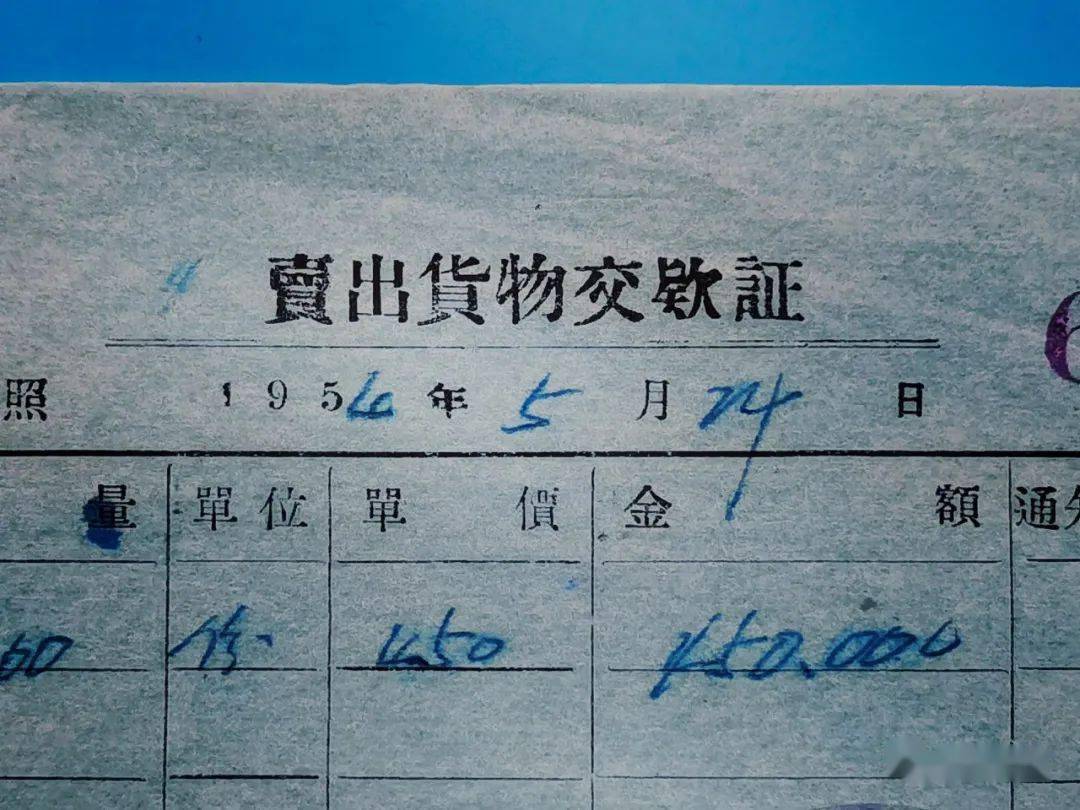 賣出貨物交欵証
照 1956年5月24日
量 單位 單價 金額 通
00 份 450 450.000